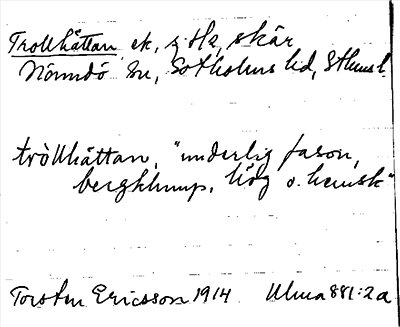 Trollhåttan ek, gHz, skär
Nämndö sn, Sotholms hd, Sthms l.
tròllhåttan, "underlig fason,
bergklump, hög o. hemsk"
Torsten Ericsson 1914 Ulma 881:2a